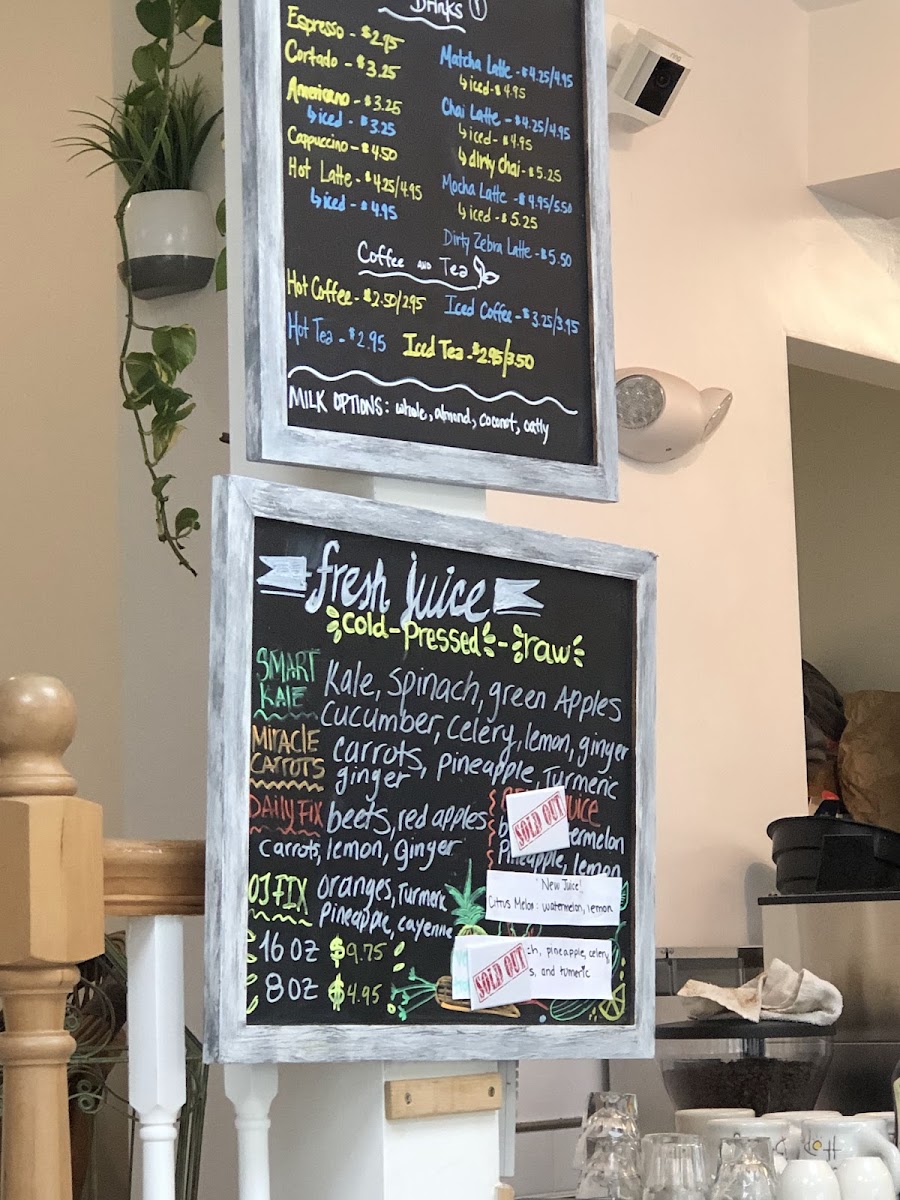 Drinks
Espresso - $2.95
Cortado - $3.25
Americano - $3.25
↳iced - $3.25
Cappuccino - $4.50
Hot Latte - $4.25/4.95
↳iced - $4.95
Matcha Latte - $4.25/4.95
↳iced - $4.95
Chai Latte - $4.25/4.95
↳iced - $4.95
↳dirty chai - $5.25
Mocha Latte - $4.95/5.50
↳iced - $5.25
Dirty Zebra Latte - $5.50
Coffee AND Tea
Hot Coffee - $2.50/2.95
Iced Coffee - $3.25/3.95
Hot Tea - $2.95
Iced Tea - $2.95/3.50
MILK OPTIONS: whole, almond, coconut, oatly
ring
fresh juice
cold-pressed - raw
SMART KALE
Kale, spinach, green Apples
cucumber, celery, lemon, ginger
MIRACLE CARROTS
carrots, pineapple, Turmeric
ginger
DAILY FIX
beets, red apples
carrots, lemon, ginger
JUICE
SOLD OUT
ermelon
Pineapple, lemon
OJ FIX
oranges, Turmeric
pineapple, cayenne
New Juice!
Citrus Melon: watermelon, lemon
16 oz $9.75
8 oz $4.95
SOLD OUT
ch, pineapple, celery,
s, and tumeric